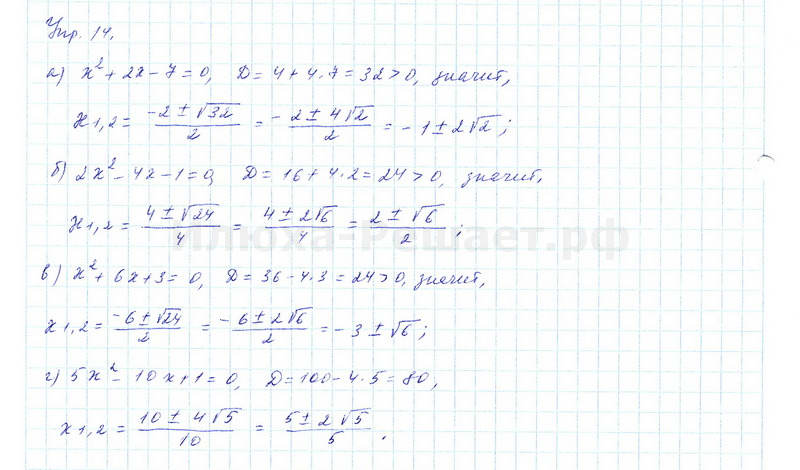 Упр. 14.
а) x² + 2x − 7 = 0, D = 4 + 4·7 = 32 > 0, значит,
x1,2 = (-2 ± √32)/2 = - (2 ± 4√2)/2 = - 1 ± 2√2;
б) 2x² − 4x − 1 = 0, D = 16 + 4·2 = 24 > 0, значит,
x1,2 = (4 ± √24)/4 = (4 ± 2√6)/4 = (2 ± √6)/2;
илюха-Решает.рф
в) x² + 6x + 3 = 0, D = 36 − 4·3 = 24 > 0, значит,
x1,2 = (-6 ± √24)/2 = (-6 ± 2√6)/2 = - 3 ± √6;
г) 5x² − 10x + 1 = 0, D = 100 − 4·5 = 80,
x1,2 = (10 ± 4√5)/10 = (5 ± 2√5)/5.